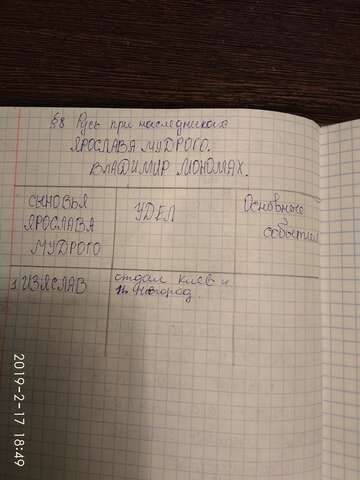 §8 Русь при наследниках
ЯРОСЛАВА МУДРОГО.
ВЛАДИМИР МОНОМАХ.
СЫНОВЬЯ
ЯРОСЛАВА
МУДРОГО
УДЕЛ
Основные
события
1 ИЗЯСЛАВ
отдал Киев и
Новгород
2019-2-17 18:49